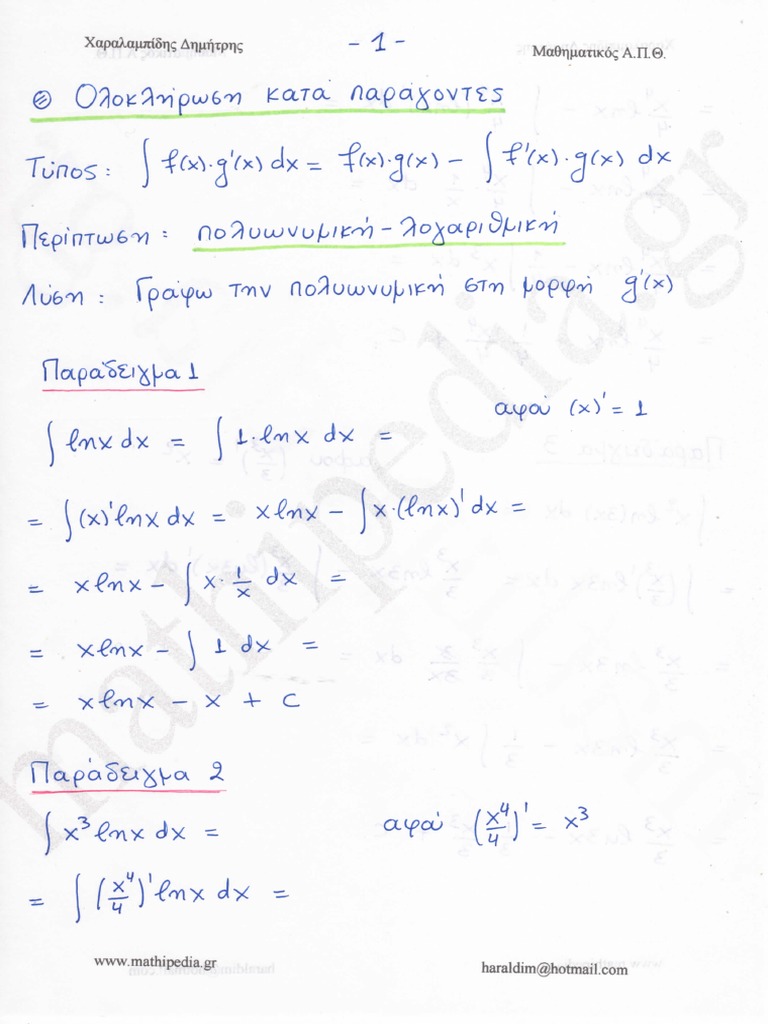 Χαραλαμπίδης Δημήτρης - 1 - Μαθηματικός Α.Π.Θ.
Ολοκλήρωση κατά παράγοντες
Τύπος: ∫ f(x)·g'(x) dx = f(x)·g(x) - ∫ f'(x)·g(x) dx
Περίπτωση: πολυωνυμική - λογαριθμική
Λύση: Γράφω την πολυωνυμική στη μορφή g'(x)
Παράδειγμα 1
αφού (x)' = 1
∫ lnx dx = ∫ 1·lnx dx =
= ∫(x)' lnx dx = xlnx - ∫x·(lnx)' dx =
= xlnx - ∫ x·1/x dx =
= xlnx - ∫ 1 dx =
= xlnx - x + c
Παράδειγμα 2
∫ x³ lnx dx = αφού (x⁴/4)' = x³
= ∫ (x⁴/4)' lnx dx =
www.mathipedia.gr haraldim@hotmail.com
mathipedia.gr